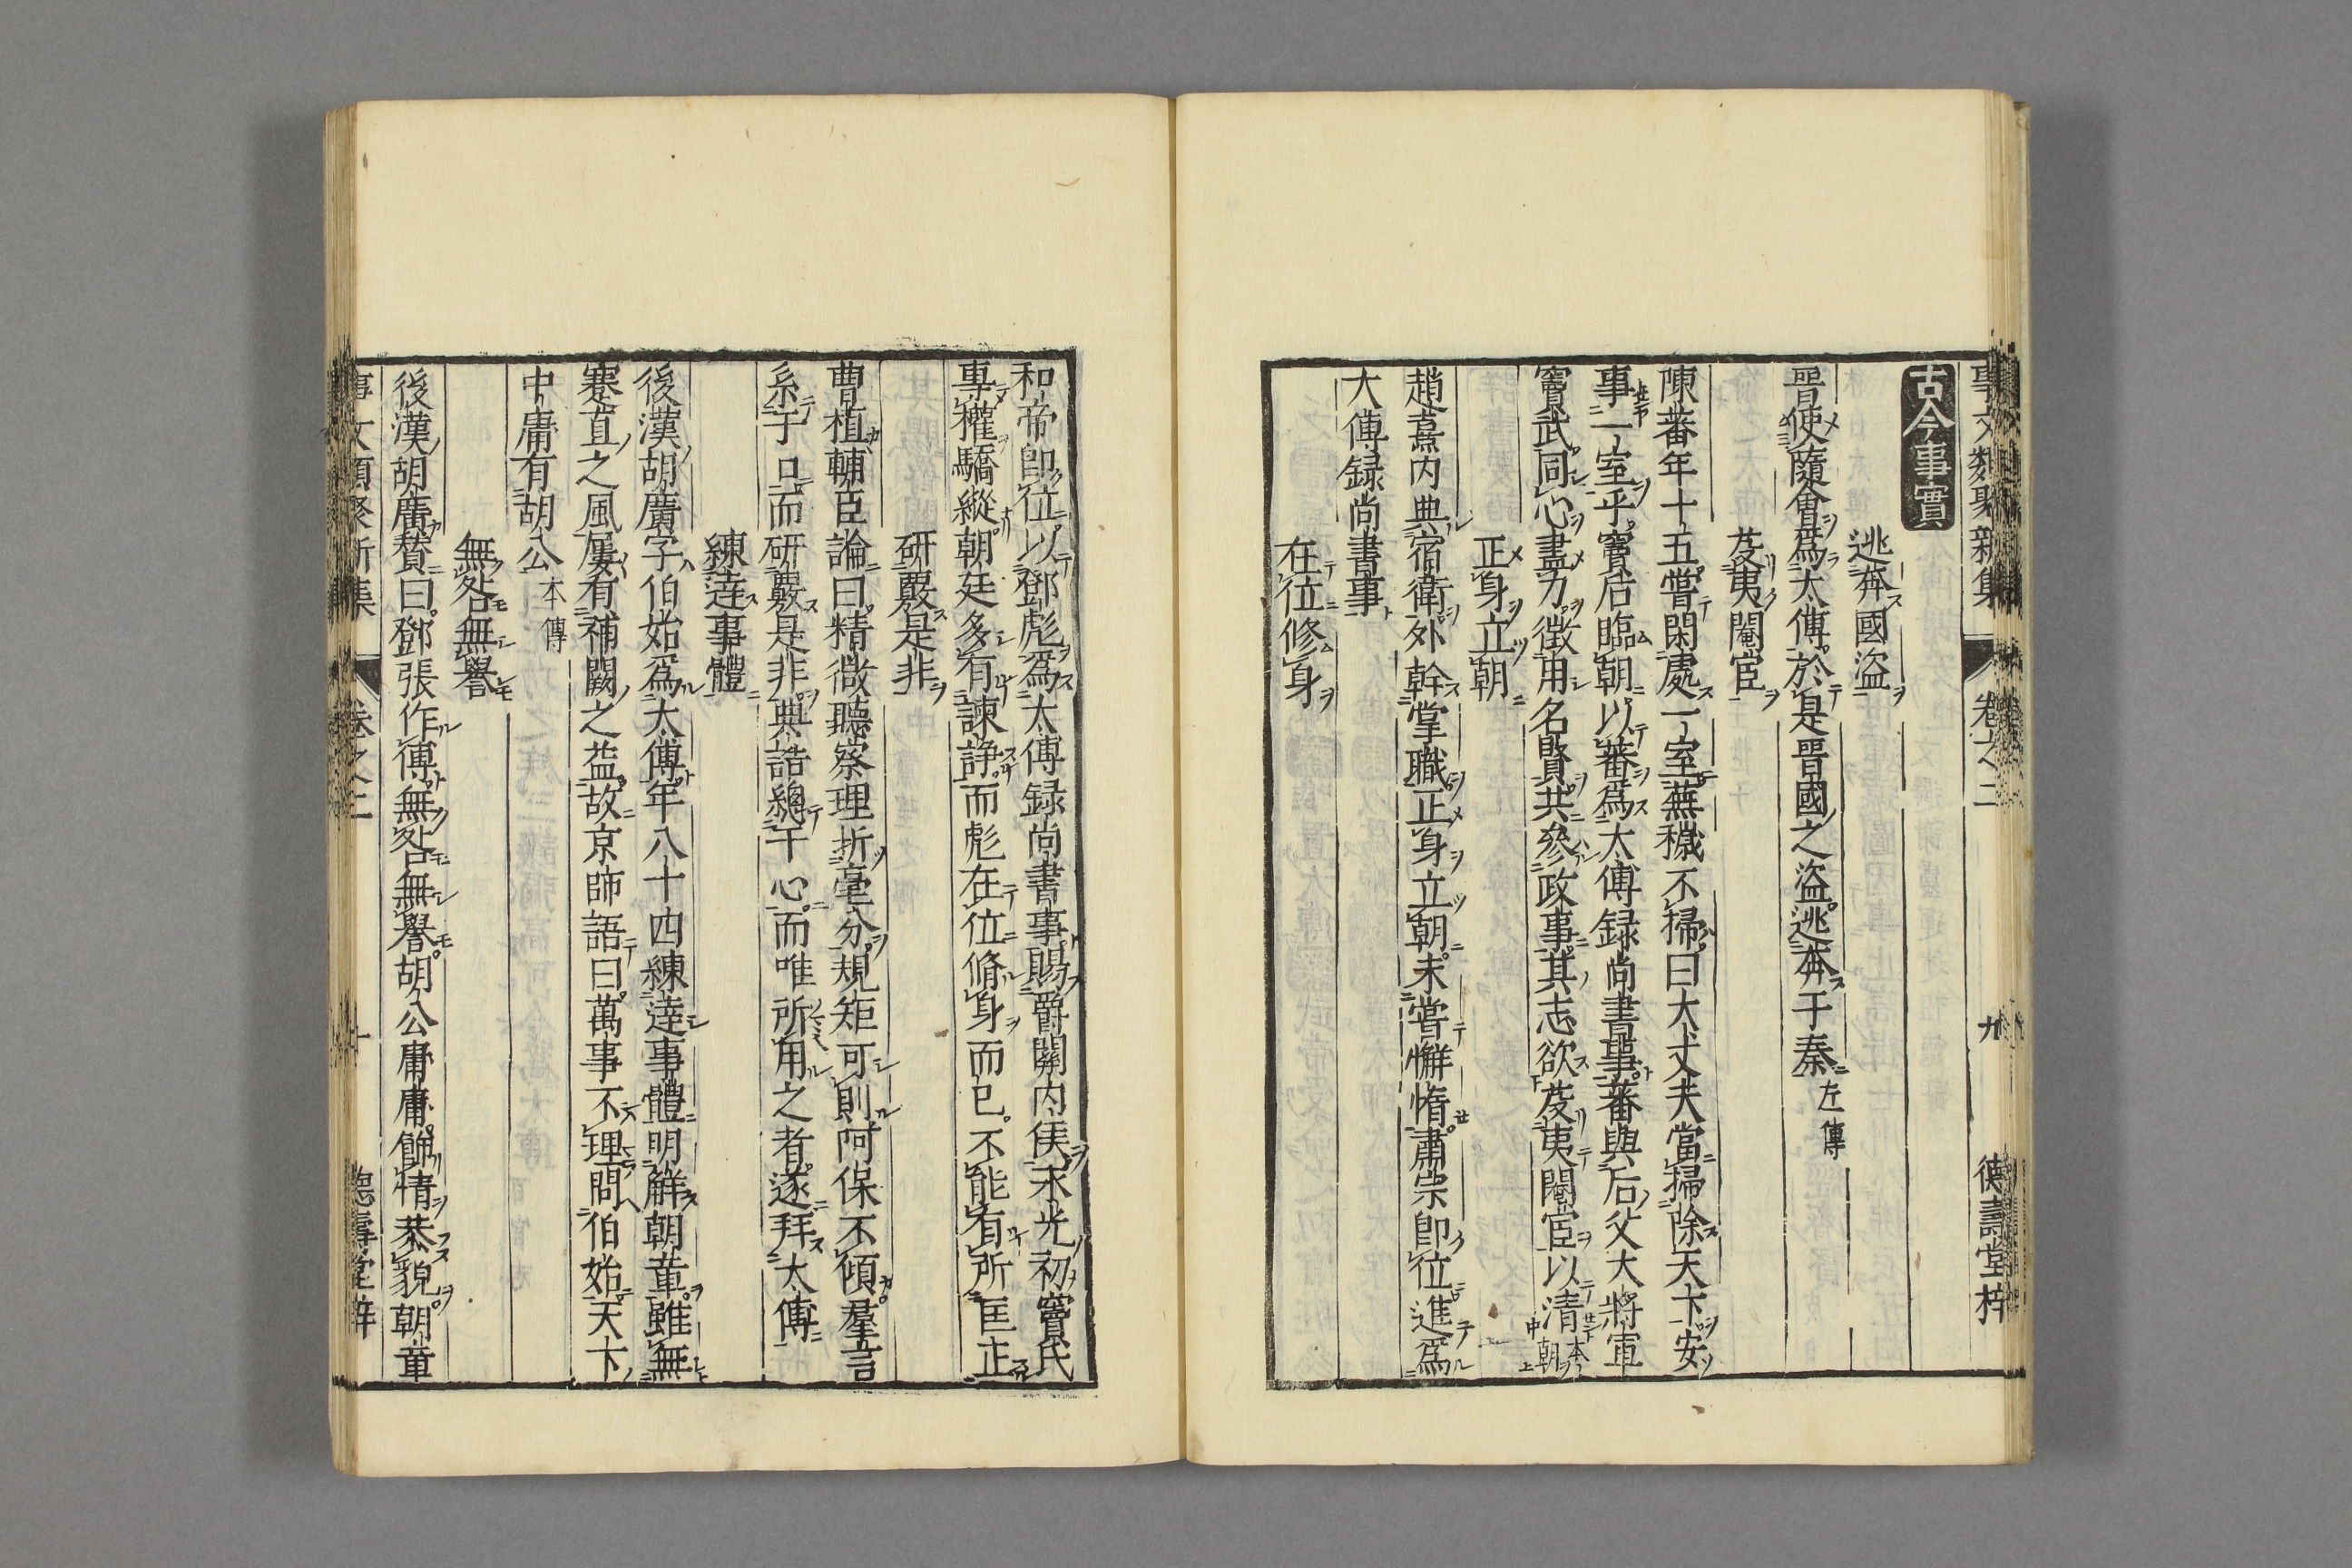 事文類聚新集 卷之二 九 德壽堂梓
古今事實
逃奔國盜
晋使隨會爲太傅於是晋國之盜逃奔于秦左傳
芟夷閹宦
陳蕃年十五嘗閑處一室蕪穢不掃曰大丈夫當掃除天下安
事一室乎竇后臨朝以蕃爲太傅録尚書事蕃與后父大將軍
竇武同心盡力徵用名賢共參政事其志欲芟夷閹宦以清本朝
正身立朝
趙憙内典宿衛外幹掌職正身立朝未嘗懈惰肅宗卽位進爲
大傅録尚書事
在位修身
和帝卽位以鄧彪爲太傅録尚書事賜爵關内侯永光初竇氏
專權驕縱朝廷多有諫諍而彪在位脩身而已不能有所匡正
研覈是非
曹植輔臣論曰精微聽察理折毫分規矩可則阿保不傾羣言
系于口而研覈是非典誥總乎心而唯所用之者遂拜太傅
練達事體
後漢胡廣字伯始爲太傅年八十四練達事體明解朝章雖無
蹇直之風屢有補闕之益故京師語曰萬事不理問伯始天下
中庸有胡公本傳
無咎無譽
後漢胡廣贊曰鄧張作傅無咎無譽胡公庸庸餙情恭貌朝章
事文類聚新集 卷之二 十 德壽堂梓